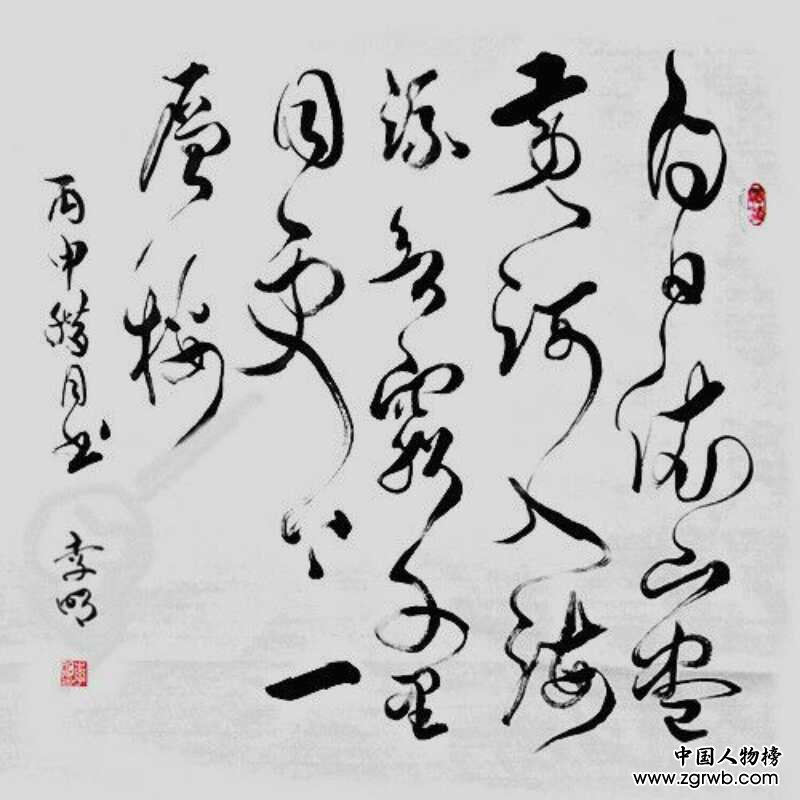 白日依山盡
黄河入海
流欲窮千里
目更上一
層樓
丙申臘月书 李明
中国人物榜
www.zgrwb.com